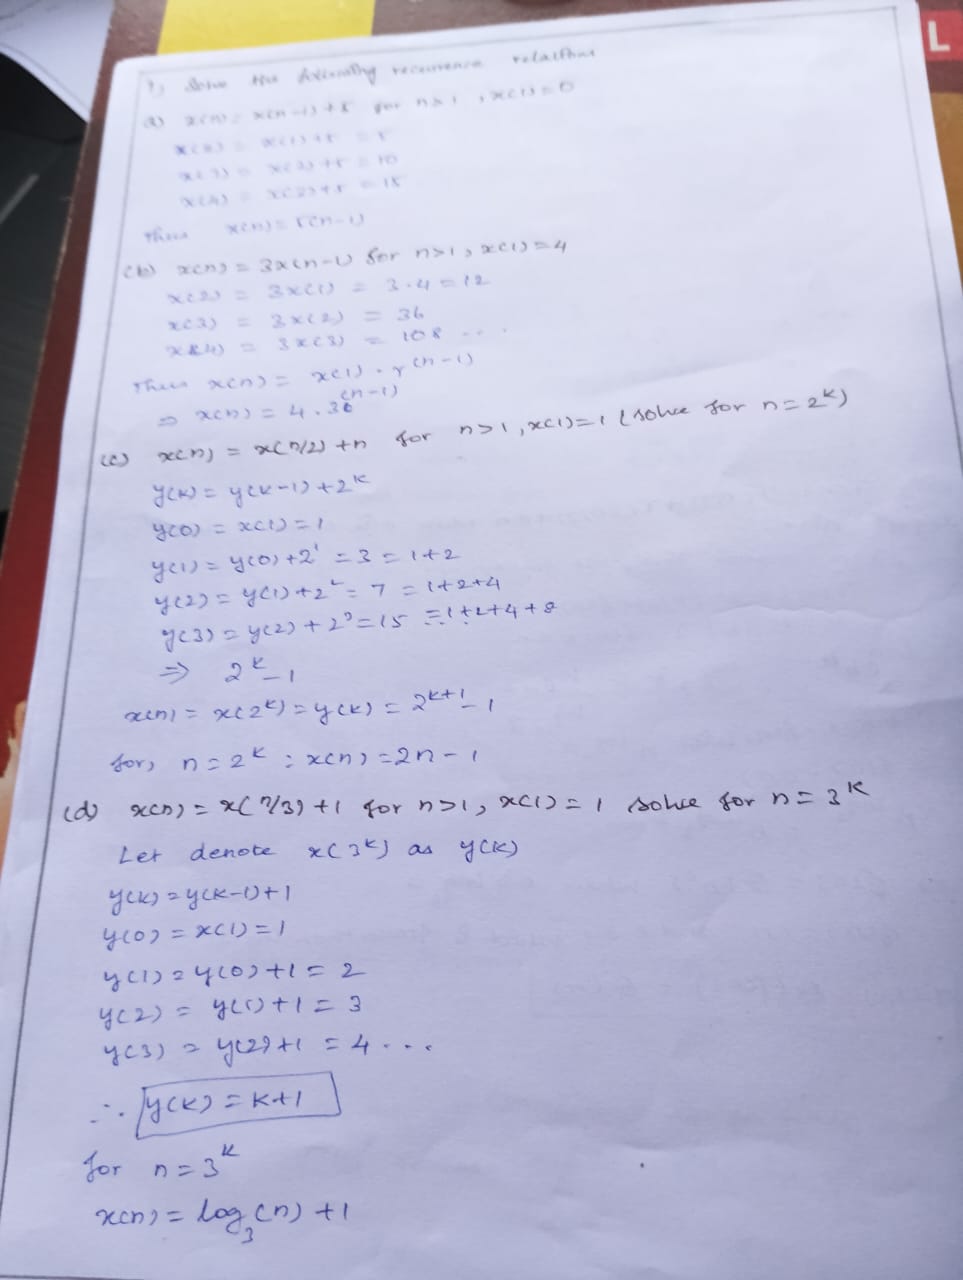 1) Solve the following recurrence relations
a) x(n) = x(n-1)+5 for n>1, x(1)=0
x(2) = x(1)+5 = 5
x(3) = x(2)+5 = 10
x(4) = x(2)+5 = 15
Thus x(n) = 5(n-1)
(b) x(n) = 3x(n-1) for n>1, x(1)=4
x(2) = 3x(1) = 3.4 = 12
x(3) = 3x(2) = 36
x(4) = 3x(3) = 108 ...
Thus x(n) = x(1).r^(n-1)
⇒ x(n) = 4.3^(n-1)
(c) x(n) = x(n/2)+n for n>1, x(1)=1 (solve for n=2^k)
y(k) = y(k-1)+2^k
y(0) = x(1) = 1
y(1) = y(0)+2^1 = 3 = 1+2
y(2) = y(1)+2^2 = 7 = 1+2+4
y(3) = y(2)+2^3 = 15 = 1+2+4+8
⇒ 2^k-1
x(n) = x(2^k) = y(k) = 2^k+1 - 1
for, n=2^k : x(n) = 2n-1
(d) x(n) = x(n/3)+1 for n>1, x(1)=1 solve for n=3^k
Let denote x(3^k) as y(k)
y(k) = y(k-1)+1
y(0) = x(1) = 1
y(1) = y(0)+1 = 2
y(2) = y(1)+1 = 3
y(3) = y(2)+1 = 4 ...
∴ y(k) = k+1
for n=3^k
x(n) = log₃(n)+1
L